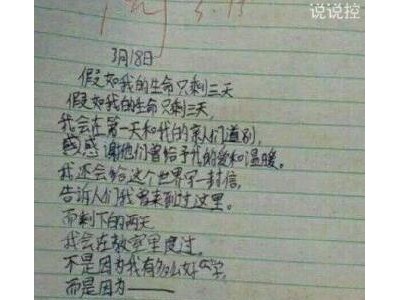 说说控
5.13
3月18日
假如我的生命只剩三天
假如我的生命只剩三天,
我会在第一天和我的亲人们道别,
感感谢他们曾给予我的爱和温暖。
我还会给这个世界写一封信,
告诉人们我曾来到过这里。
而剩下的两天
我会在教室里度过,
不是因为我有多么好学,
而是因为——